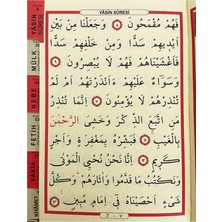 YÂSÎN SÛRESİ
فَهُمْ مُقْمَحُونَ ﴿٨﴾ وَجَعَلْنَا مِنْ بَيْنِ
اَيْدٖيهِمْ سَدًّا وَمِنْ خَلْفِهِمْ سَدًّا
فَاَغْشَيْنَاهُمْ فَهُمْ لَا يُبْصِرُونَ ﴿٩﴾
وَسَوَٓاءٌ عَلَيْهِمْ ءَاَنْذَرْتَهُمْ اَمْ لَمْ
تُنْذِرْهُمْ لَا يُؤْمِنُونَ ﴿١٠﴾ اِنَّمَا تُنْذِرُ
مَنِ اتَّبَعَ الذِّكْرَ وَخَشِىَ الرَّحْمٰنَ
بِالْغَيْبِ فَبَشِّرْهُ بِمَغْفِرَةٍ وَاَجْرٍ
كَرٖيمٍ ﴿١١﴾ اِنَّا نَحْنُ نُحْيِ الْمَوْتٰى
وَنَكْتُبُ مَا قَدَّمُوا وَاٰثَارَهُمْ وَكُلَّ
شَىْءٍ اَحْصَيْنَاهُ فٖٓى اِمَامٍ مُبٖينٍ ﴿١٢﴾
YÂSİN
SÛRESİ
MÜLK
NEBE
FETİH
VÂKIA
KIYÂMET